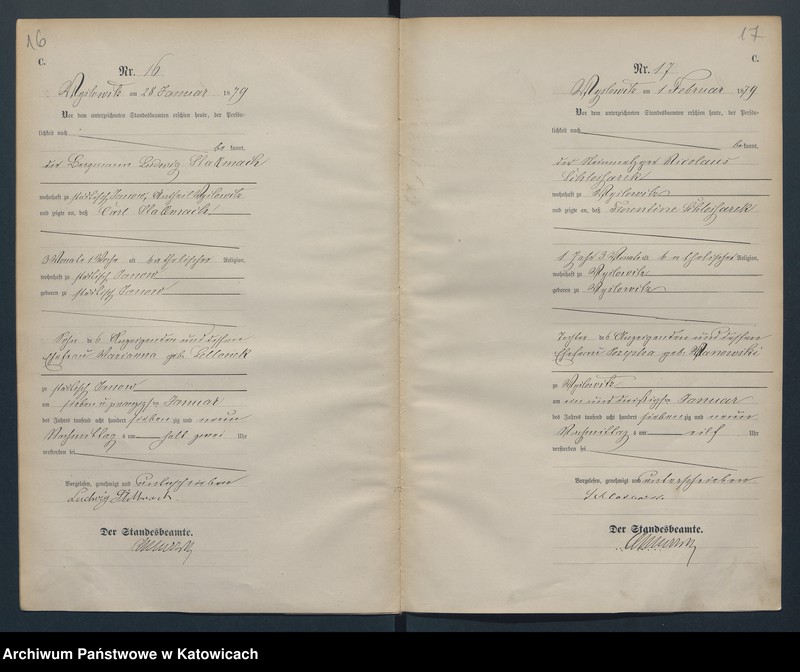 16
C.
Nr. 16
Myslowitz am 28 Januar 1879
Vor dem unterzeichneten Standesbeamten erschien heute, der Persön-
lichkeit nach
be kannt,
der Bergmann Ludwig
wohnhaft zu städtisch Janow, Antheil Myslowitz
und zeigte an, daß Carl
3 Monate 1 Woche alt katholischer Religion,
wohnhaft zu städtisch Janow
geboren zu städtisch Janow
Sohn des Anzeigenden und dessen
Ehefrau Marianna geb.
zu städtisch Janow
am sieben u zwanzigst Januar
des Jahres tausend acht hundert sieben zig und neun
Nachmittag s um halb zwei Uhr
verstorben sei
Vorgelesen, genehmigt und unterschrieben
Ludwig
Der Standesbeamte.
17
C.
Nr. 17
Myslowitz am 1 Februar 1879
Vor dem unterzeichneten Standesbeamten erschien heute, der Persön-
lichkeit nach
be kannt,
der Steinmetzger Nicolaus
wohnhaft zu Myslowitz
und zeigte an, daß Florentine
1 Jahr 3 Monate katholischer Religion,
wohnhaft zu Myslowitz
geboren zu Myslowitz
Tochter des Anzeigenden und dessen
Ehefrau Josepha geb.
zu Myslowitz
am ein und dreißigst Januar
des Jahres tausend acht hundert sieben zig und neun
Nachmittag s um eilf Uhr
verstorben sei
Vorgelesen, genehmigt und unterschrieben
Der Standesbeamte.
Archiwum Państwowe w Katowicach